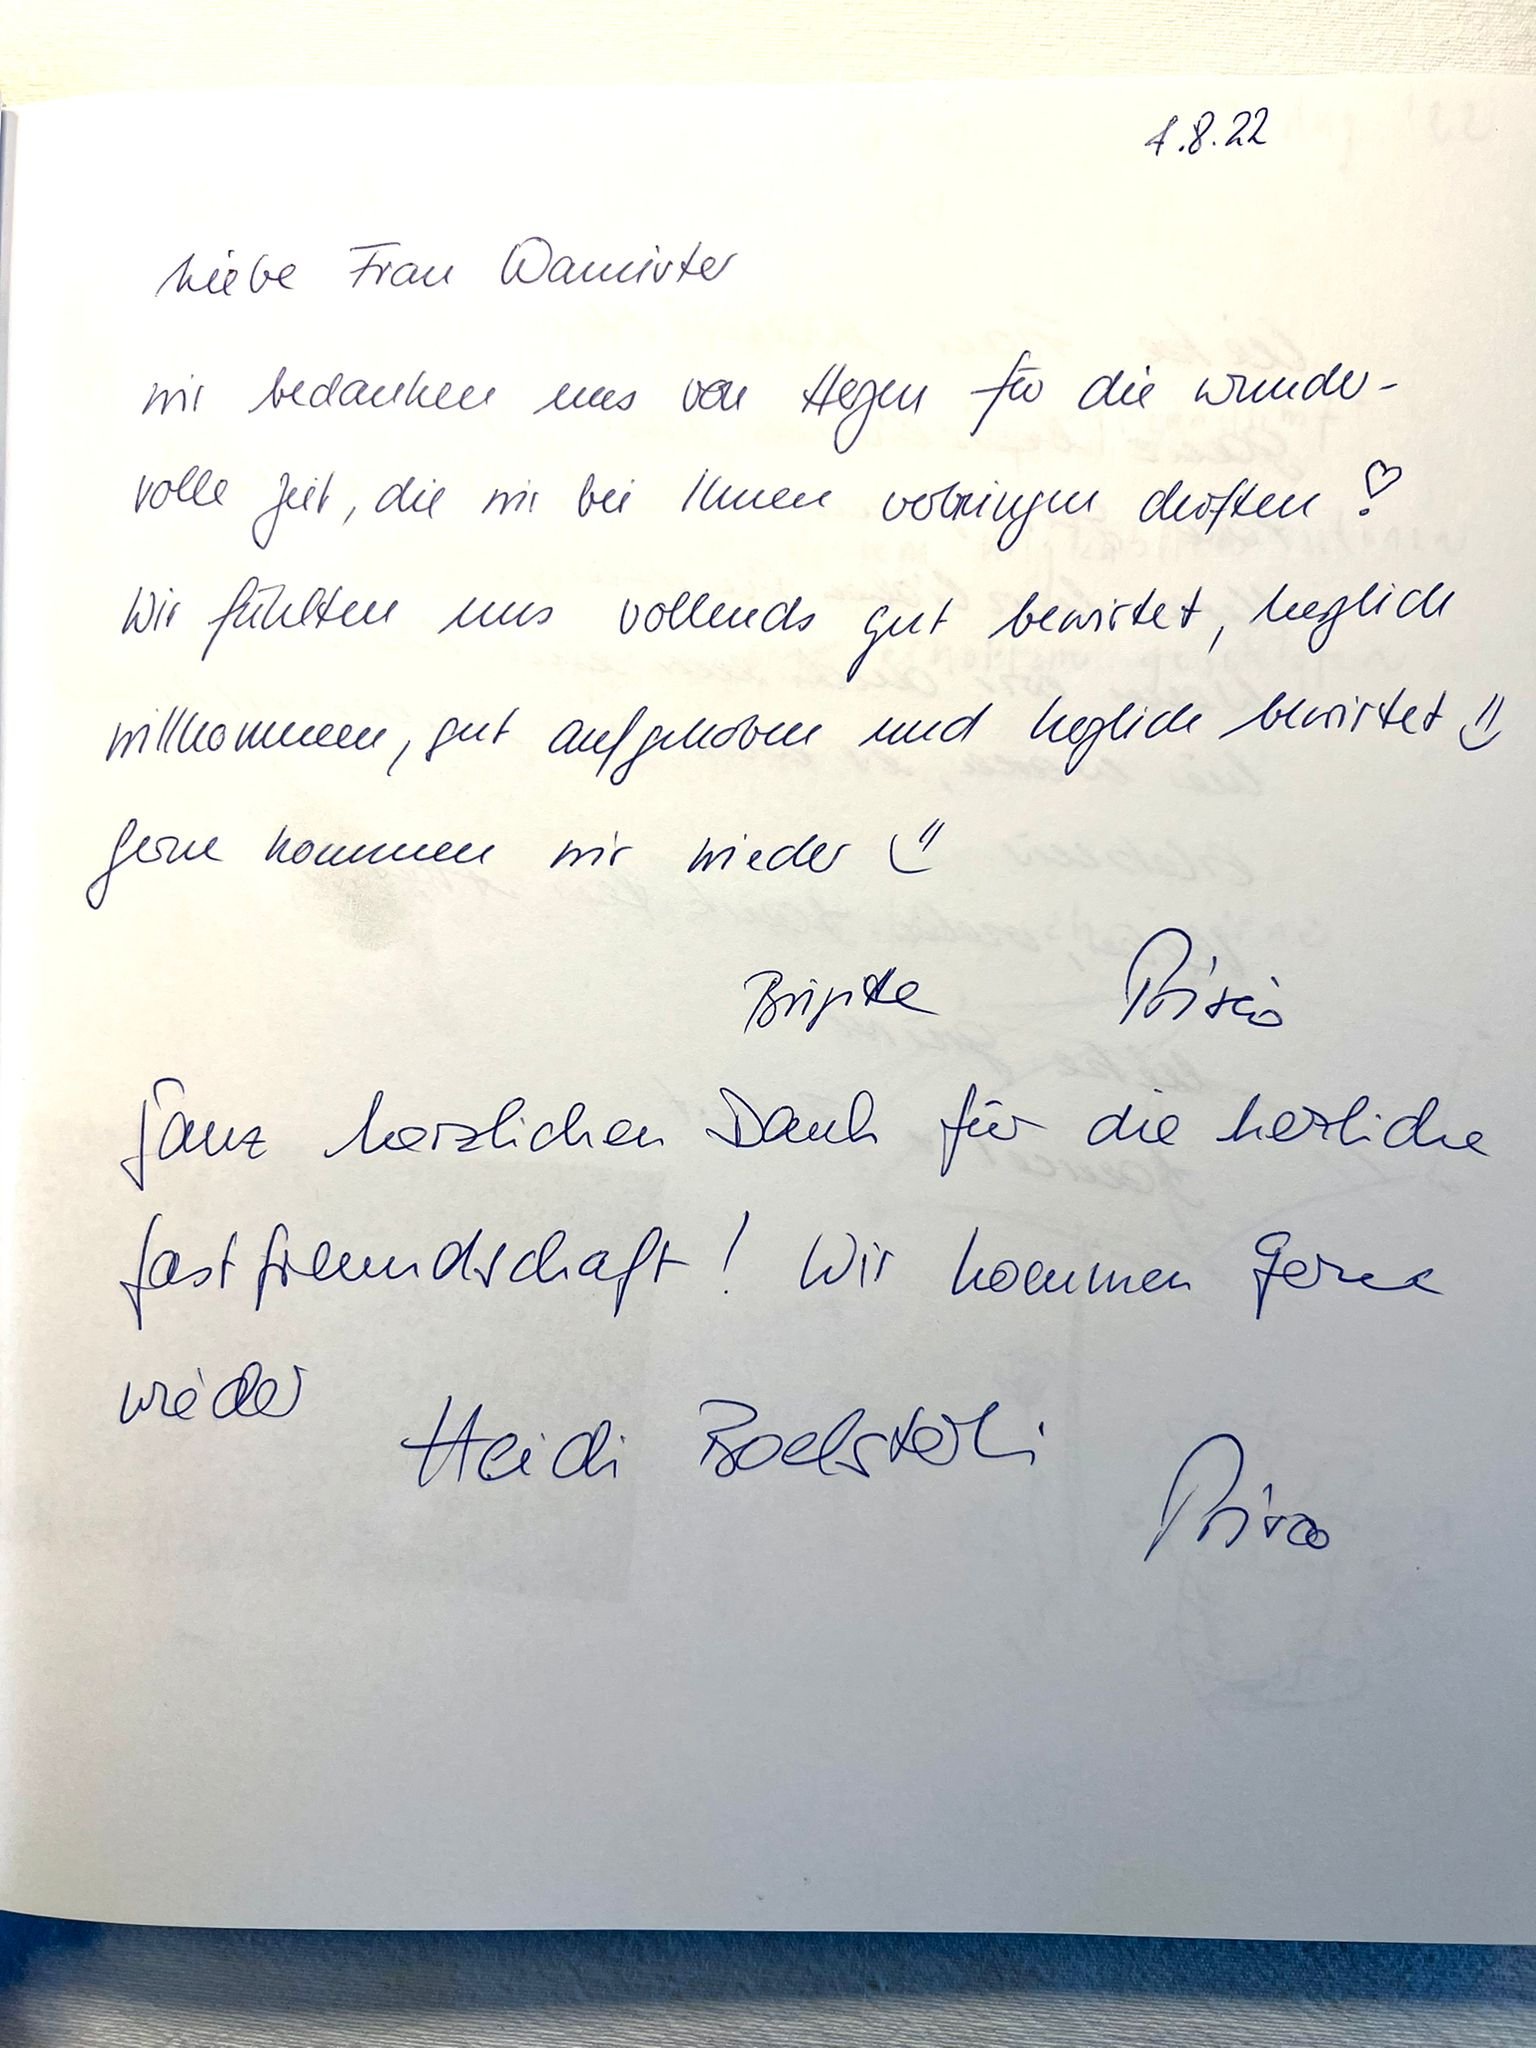 1.8.22
Liebe Frau
wir bedanken uns von Herzen für die wunder-
volle Zeit, die wir bei Ihnen verbringen durften!
Wir fühlten uns vollends gut bewirtet, herzlich
willkommen, gut aufgehoben und herzlich bewirtet
Gerne kommen wir wieder
Brigitte
Ganz herzlichen Dank für die herliche
Gastfreundschaft! Wir kommen gerne
wieder
Heidi Boelsterli